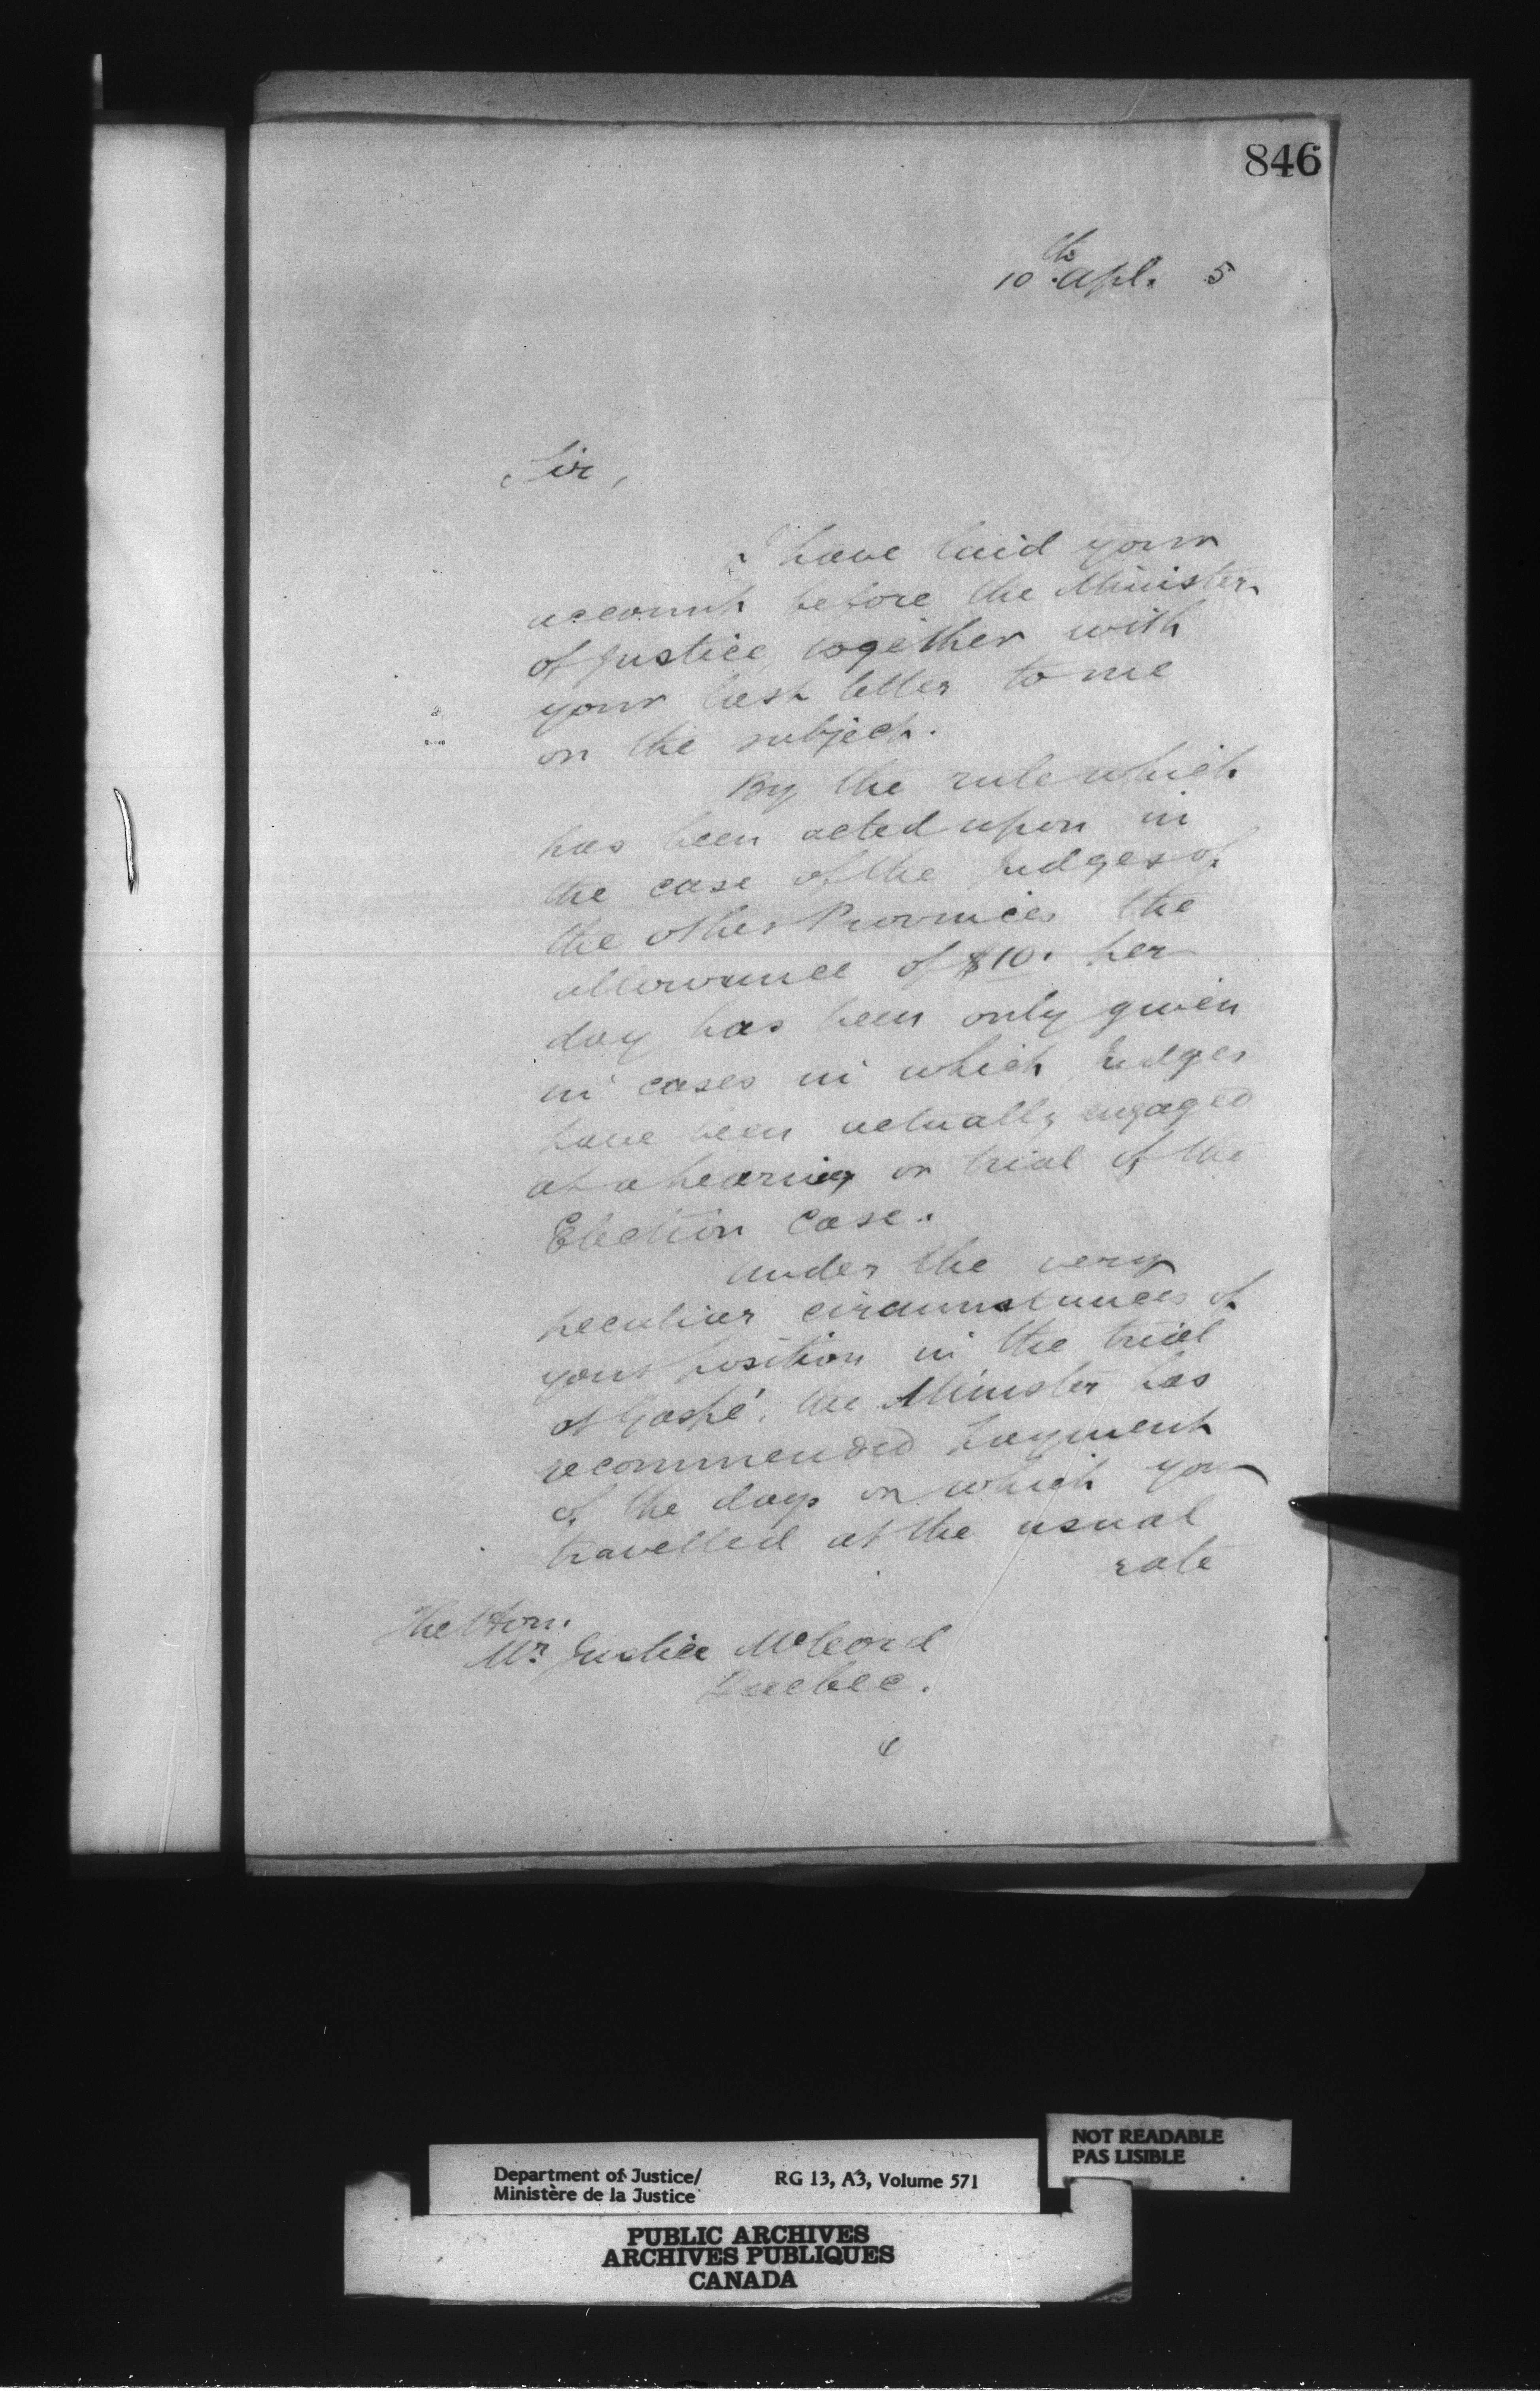 846
10th Apl. 5
Sir,
I have laid your
account before the Minister
of Justice, together with
your last letter to me
on the subject.
By the rule which
has been acted upon in
the case of the Judges of
the other Provinces the
allowance of $10. per
day has been only given
in cases in which Judges
have been actually engaged
at a hearing or trial of the
Election Case.
Under the very
peculiar circumstances of
your position in the trial
at Gaspé, the Minister has
recommended payment
of the days on which you
travelled at the usual
rate
The Hon.
Mr Justice McCord
Quebec.
NOT READABLE
PAS LISIBLE
Department of Justice/ RG 13, A3, Volume 571
Ministère de la Justice
PUBLIC ARCHIVES
ARCHIVES PUBLIQUES
CANADA